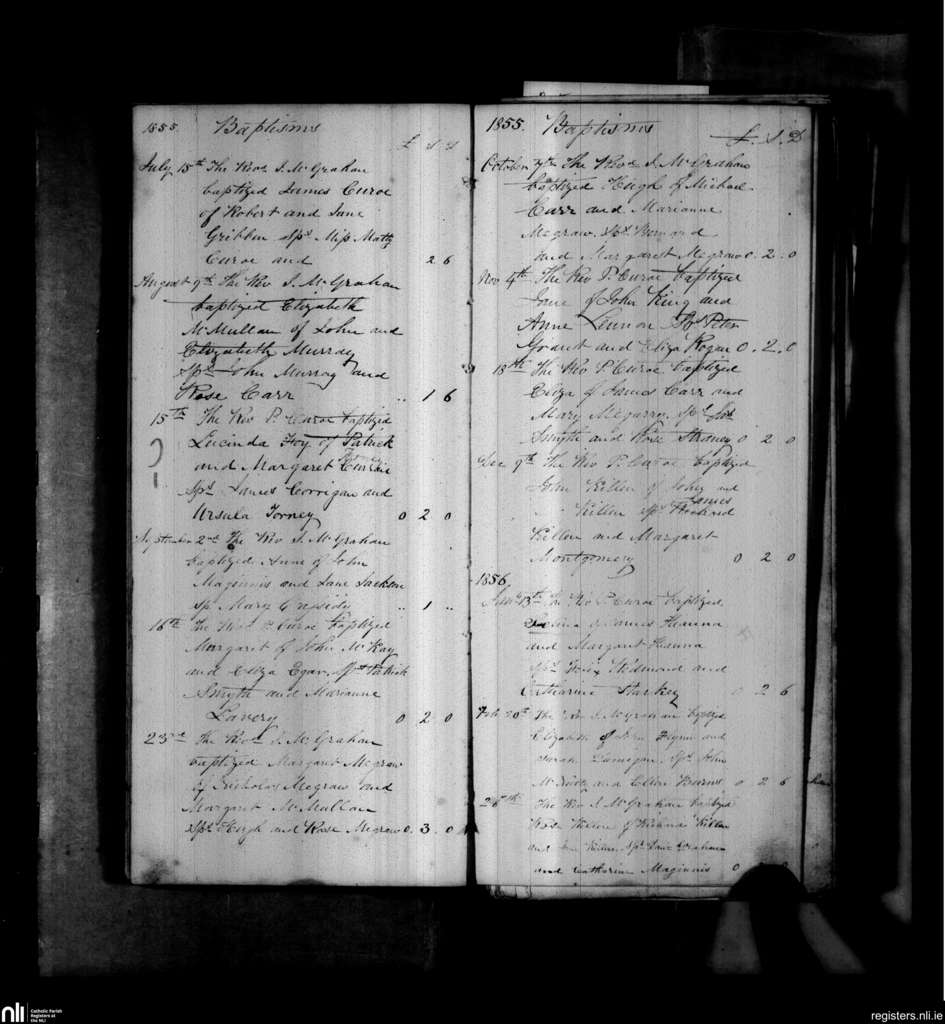 1855. Baptisms
£ s d
July 15th The Revd. J. McGrahan
baptized James Curoe
of Robert and Jane
Gribben Sps. Miss Matty
Curoe and 2 6
August 9th The Rev J. McGrahan
baptized Elizabeth
McMullan of John and
Elizabeth Murray
Sps. John Murray and
Rose Carr .. 1 6
15th The Rev P. Curoe baptized
Lucinda Foy of Patrick
and Margaret
Sps. James Corrigan and
Ursula Torney 0 2 0
September 2nd The Rev J. McGrahan
baptized Anne of John
Maginnis and Jane Jackson
Sp. Mary Cassidy .. 1 ..
16th The Revd. P. Curoe baptized
Margaret of John McKay
and Eliza Egan, Sps. Patrick
Smyth and Marianne
Lavery 0 2 0
23rd The Revd. J. McGrahan
baptized Margaret Megraw
of Nicholas Megraw and
Margaret McMullan
Sps. Hugh and Rose Megraw 0. 3. 0
1855. Baptisms
£. S. D
October 7th The Revd J. McGrahan
baptized Hugh of Michael
Carr and Marianne
Megraw. Sps. Bernard
and Margaret Megraw 0. 2. 0
Nov 4th The Rev P. Curoe baptized
Jane of John King and
Anne Lennon Sps. Peter
Grant and Eliza Rogan 0. 2. 0
18th The Rev P. Curoe baptized
Eliza of James Carr and
Mary Megarry. Sps.
Smyth and Rose 0 2 0
Dec 9th The Rev P. Curoe baptized
John Killen of John and
Killen Sps. James
Killen and Margaret
Montgomery 0 2 0
1856
13th The Rev P. Curoe baptized
of James Hanna
and Margaret Hanna
Sps. Redmond and
Catharine Starkey 0 2 6
Feb 20th The Rev J. McGrahan baptized
Elizabeth of Flynn and
Sarah Lanigan. Sps. John
and Ellen Burns 0 2 6
The Rev J. McGrahan baptized
Rose Killen of Killen
and Killen. Sps. Graham
and Catharine Maginnis 0
nli
Catholic Parish
Registers at
the NLI
registers.nli.ie